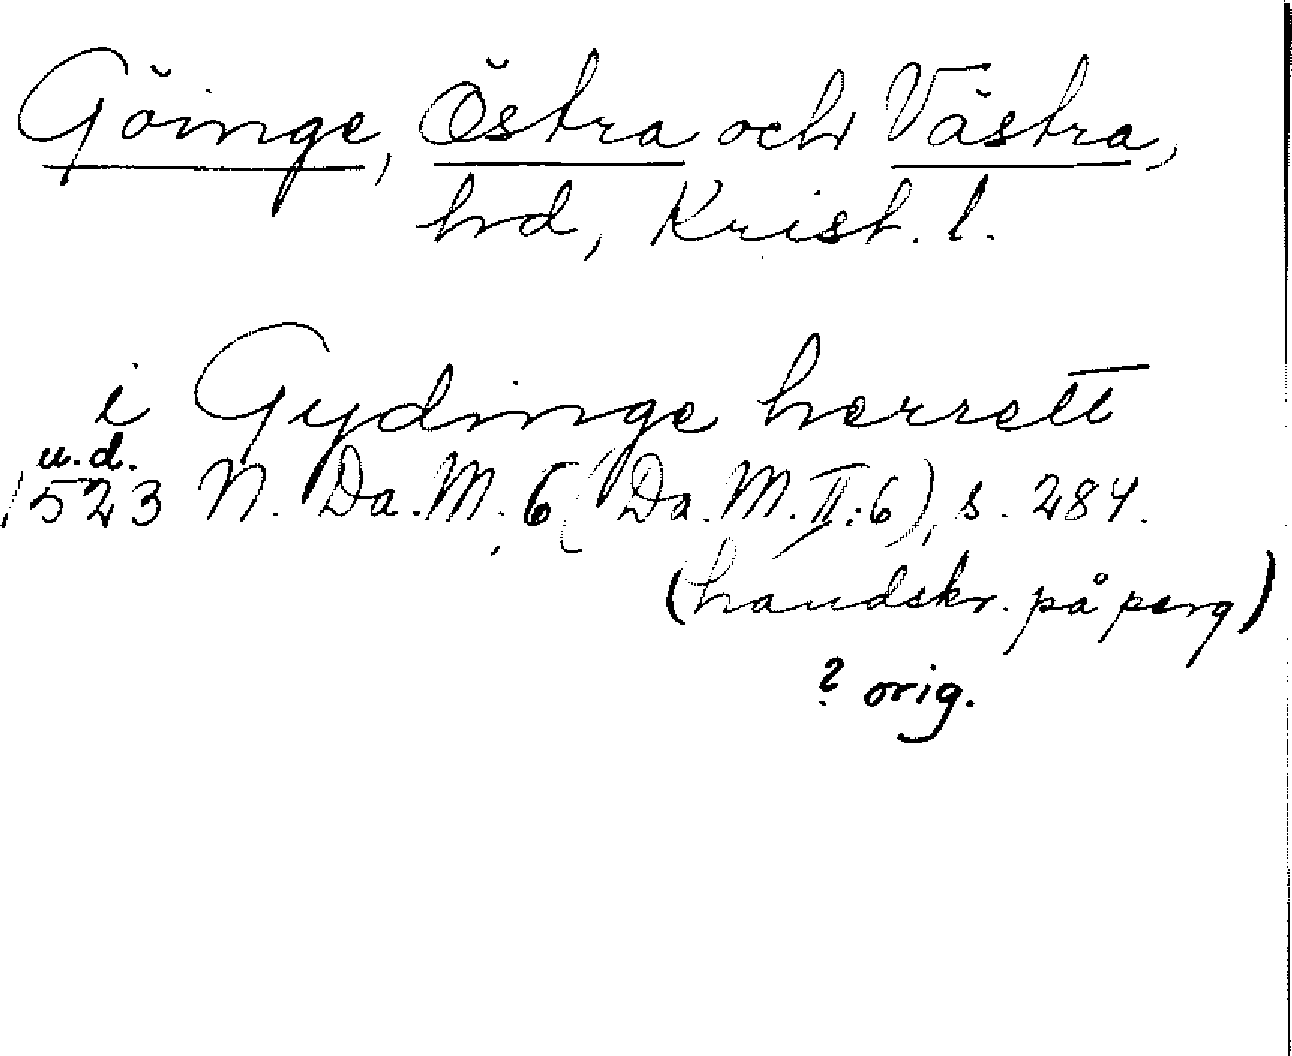 Göinge, Östra och Västra,
hd, Krist. l.
i Gydinge herrett
u.d.
1523 N. Da. M. 6 (Da. M. II:6), s. 284.
(handskr. på perg)
? orig.